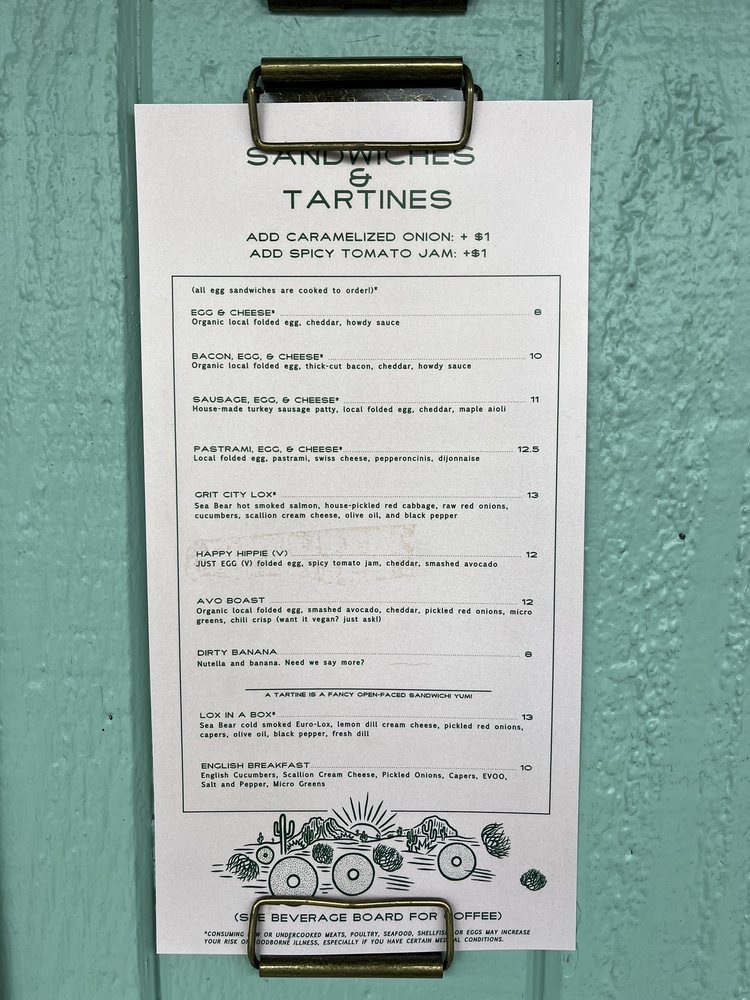 SANDWICHES
&
TARTINES
ADD CARAMELIZED ONION: + $1
ADD SPICY TOMATO JAM: +$1
(all egg sandwiches are cooked to order!)*
EGG & CHEESE* 8
Organic local folded egg, cheddar, howdy sauce
BACON, EGG, & CHEESE* 10
Organic local folded egg, thick-cut bacon, cheddar, howdy sauce
SAUSAGE, EGG, & CHEESE* 11
House-made turkey sausage patty, local folded egg, cheddar, maple aioli
PASTRAMI, EGG, & CHEESE* 12.5
Local folded egg, pastrami, swiss cheese, pepperoncinis, dijonnaise
GRIT CITY LOX* 13
Sea Bear hot smoked salmon, house-pickled red cabbage, raw red onions,
cucumbers, scallion cream cheese, olive oil, and black pepper
HAPPY HIPPIE (V) 12
JUST EGG (V) folded egg, spicy tomato jam, cheddar, smashed avocado
AVO BOAST 12
Organic local folded egg, smashed avocado, cheddar, pickled red onions, micro
greens, chili crisp (want it vegan? just ask!)
DIRTY BANANA 8
Nutella and banana. Need we say more?
A TARTINE IS A FANCY OPEN-FACED SANDWICH! YUM!
LOX IN A BOX* 13
Sea Bear cold smoked Euro-Lox, lemon dill cream cheese, pickled red onions,
capers, olive oil, black pepper, fresh dill
ENGLISH BREAKFAST 10
English Cucumbers, Scallion Cream Cheese, Pickled Onions, Capers, EVOO,
Salt and Pepper, Micro Greens
(SEE BEVERAGE BOARD FOR COFFEE)
*CONSUMING RAW OR UNDERCOOKED MEATS, POULTRY, SEAFOOD, SHELLFISH OR EGGS MAY INCREASE
YOUR RISK OF FOODBORNE ILLNESS, ESPECIALLY IF YOU HAVE CERTAIN MEDICAL CONDITIONS.